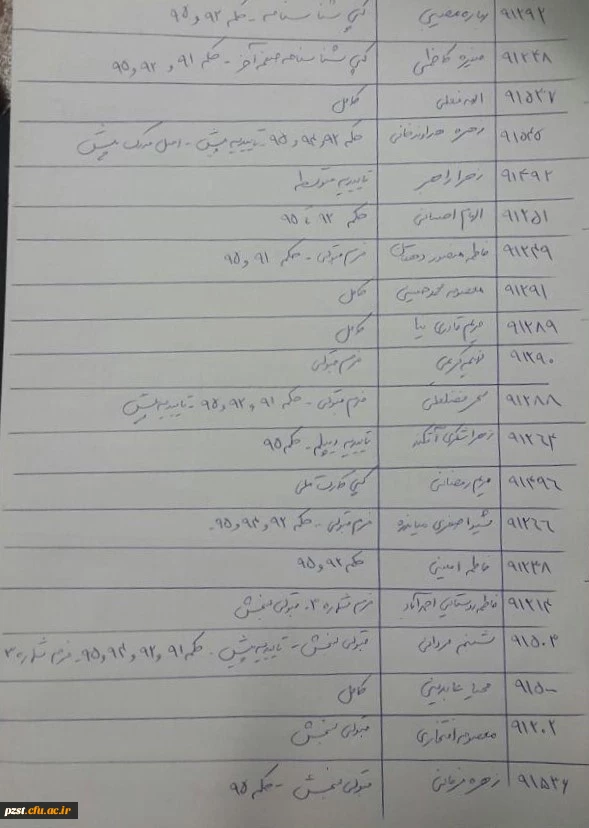 ۹۱۲۹۲ بهاره کپی شناسنامه - حکم ۹۲ و ۹۵
۹۱۲۴۸ منیره کاظمی کپی شناسنامه صفحه آخر - حکم ۹۱ و ۹۲ و ۹۵
۹۱۵۲۷ الهه کامل
۹۱۵۴۵ زهره حکم ۹۲ و ۹۴ و ۹۵ - تاییدیه پیش - اصل مدرک پیش
۹۱۴۹۲ زهرا راهبر تاییدیه متوسطه
۹۱۲۵۱ الهام احسانی حکم ۹۲ تا ۹۵
۹۱۲۴۹ فاطمه منصور دهقان فرم قبولی - حکم ۹۱ و ۹۵
۹۱۲۹۱ معصومه محمدحسینی کامل
۹۱۲۸۹ مریم قادری نیا کامل
۹۱۲۹۰ فهیمه کریمی فرم قبولی
۹۱۲۸۸ سحر فرم قبولی - حکم ۹۱ و ۹۲ و ۹۵ - تاییدیه پیش
۹۱۲۶۴ زهرا تاییدیه دیپلم - حکم ۹۵
۹۱۴۹۶ مریم رمضانی کپی کارت ملی
۹۱۲۶۶ اصغری فرم قبولی - حکم ۹۲ و ۹۴ و ۹۵
۹۱۲۳۸ فاطمه امینی حکم ۹۲ و ۹۵
۹۱۲۱۴ فاطمه روستایی فرم شماره ۳ - قبولی سنجش
۹۱۵۰۴ شبنم مردانی قبولی سنجش - تاییدیه پیش - حکم ۹۱ و ۹۲ و ۹۴ و ۹۵ - فرم شماره ۳
۹۱۵۰۰ محیا عابدینی کامل
۹۱۲۰۲ معصومه افتخاری قبولی سنجش
۹۱۵۲۶ زهره قبولی سنجش - حکم ۹۵
pzst.cfu.ac.ir